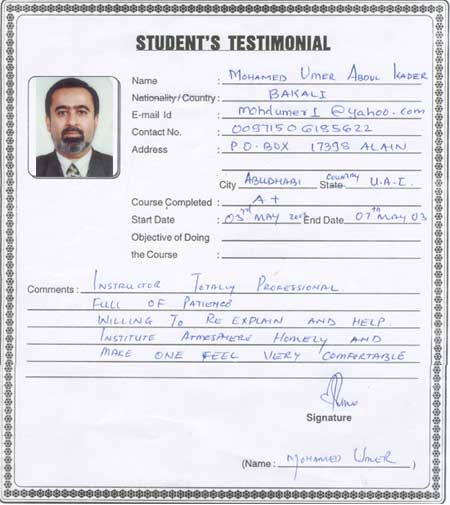 STUDENT'S TESTIMONIAL
Name : MOHAMED UMER ABDUL KADER
Nationality / Country : BAKALI
E-mail Id : mohdumer1@yahoo.com
Contact No. : 00971506185622
Address : P.O.BOX 17398 ALAIN
City ABUDHABI State COUNTRY U.A.E.
Course Completed : A+
Start Date : 03rd MAY End Date 07th MAY 03
Objective of Doing
the Course :
Comments : INSTRUCTOR TOTALY PROFESSIONAL
FULL OF PATIENCE
WILLING TO RE EXPLAIN AND HELP
INSTITUTE ATMOSPHERE HOMELY AND
MAKE ONE FEEL VERY COMFORTABLE
Signature
(Name : MOHAMED UMER )